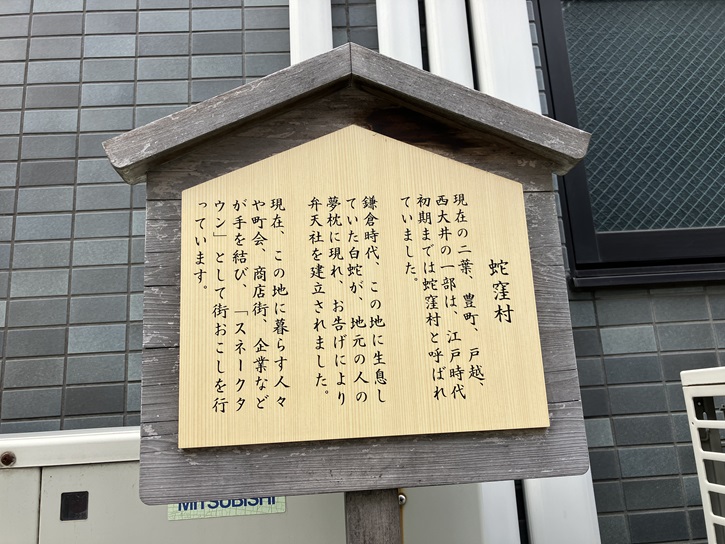 蛇窪村
現在の二葉、豊町、戸越、
西大井の一部は、江戸時代
初期までは蛇窪村と呼ばれ
ていました。
鎌倉時代、この地に生息し
ていた白蛇が、地元の人の
夢枕に現れ、お告げにより
弁天社を建立されました。
現在、この地に暮らす人々
や町会、商店街、企業など
が手を結び、「スネークタ
ウン」として街おこしを行
っています。
MITSUBISHI